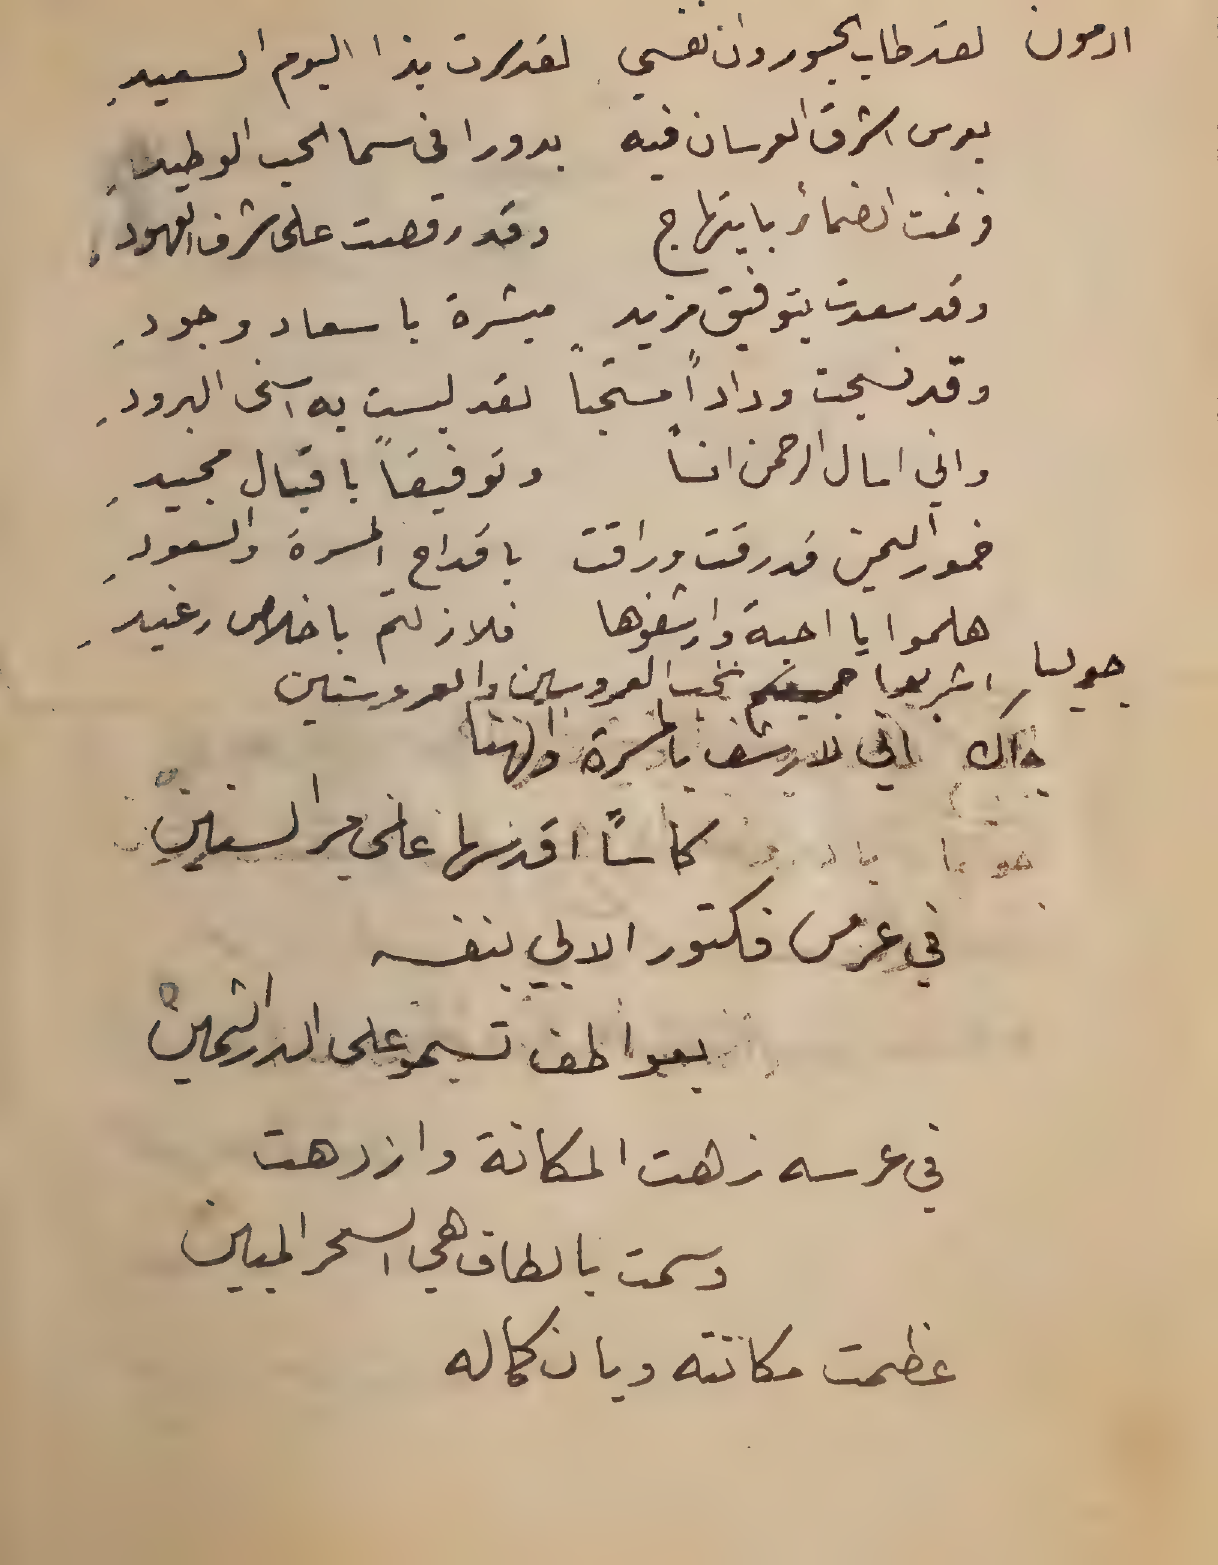 ادمون لقد طاب الحبور وان نفسي لقد سرت بذا اليوم السعيدِ
بعرس اشرق العرسان فيه بدورا في سما الحب الوطيدِ
وغنت الضمائر بابتهاج وقد رقصت على شرف العهودِ
وقد سعدت بتوفيق مزيدٍ مبشرة باسعاد وجودِ
وقد نسجت وداداً مستحباً لقد لبست به اسنى البرودِ
واني اسال الرحمن انساً وتوفيقاً باقبال مجيدِ
خمور اليمن قد رقت وراقت باقداح المسرة والسعودِ
هلموا يا احبة وارشفوها فلازلتم باخلاص رغيدِ
جوليا اشربوا جميعكم نخب العروسين والعروستين
جاك اني لارشف بالمسرة والهنا
كاساً اقدسها على مر السنينْ
في عرس فكتور الابي بنفسه
بعواطف تسمو على الدر الثمينْ
في عرسه زهت المكانة وازدهت
وسمت بالطاف هي السحر المبين
عظمت مكانته وبان كماله